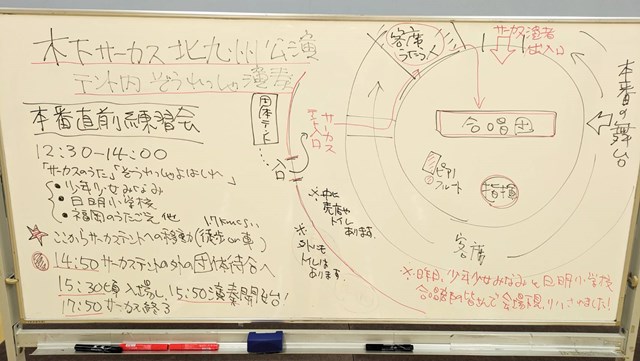 木下サーカス北九州公演
テント内 ぞうれっしゃ演奏
本番直前練習会
12:30-14:00
「サーカスのうた」「ぞうれっしゃよはしれ」
・少年少女みなみ
・日明小学校
・福岡のうたごえ他
ここからサーカステントへの移動(徒歩or車)
14:50 サーカステントの外の団体待合へ
15:30頃入場し、15:50演奏開始!
17:50 サーカス終了
団体テント
入口
サーカス
テント入口
※中に
売店や
トイレ
あります
※
外にも
トイレは
あります
客席
うたう
サーカス演者
出入口
合唱団
ピアノ
フルート
指揮
客席
本番の舞台
※昨日、少年少女みなみと日明小学校